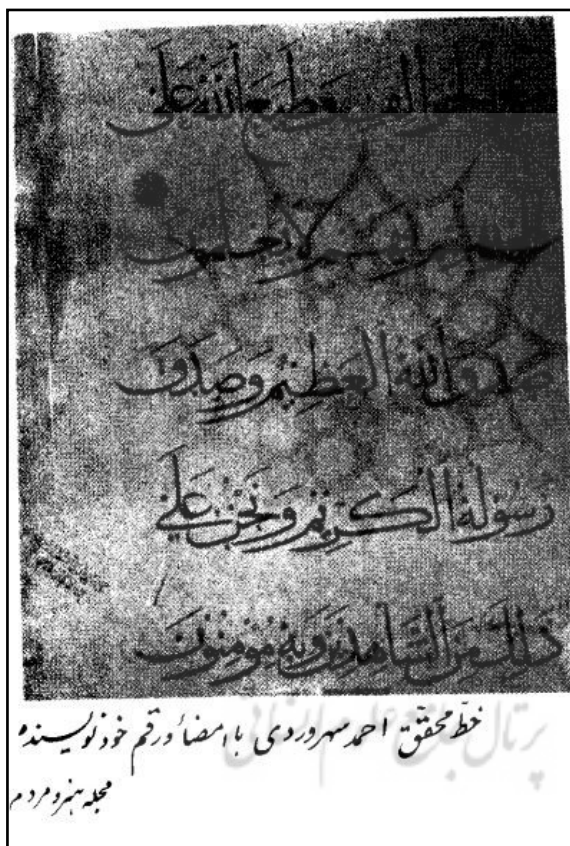 الخوالف وَطَبَعَ اللهُ عَلَى
فهم لا يعلمون
صَدَقَ اللهُ العَظِيمُ وَصَدَقَ
رَسُولُهُ الكَرِيمُ وَنَحْنُ عَلَى
ذَلِكَ مِنَ الشَّاهِدِينَ وَبِهِ مُؤْمِنُونَ
خطّ محقّق احمد سهروردی با امضاء و رقم خود نویسنده
مجله هنر و مردم
پرتال جامع علوم انسانی